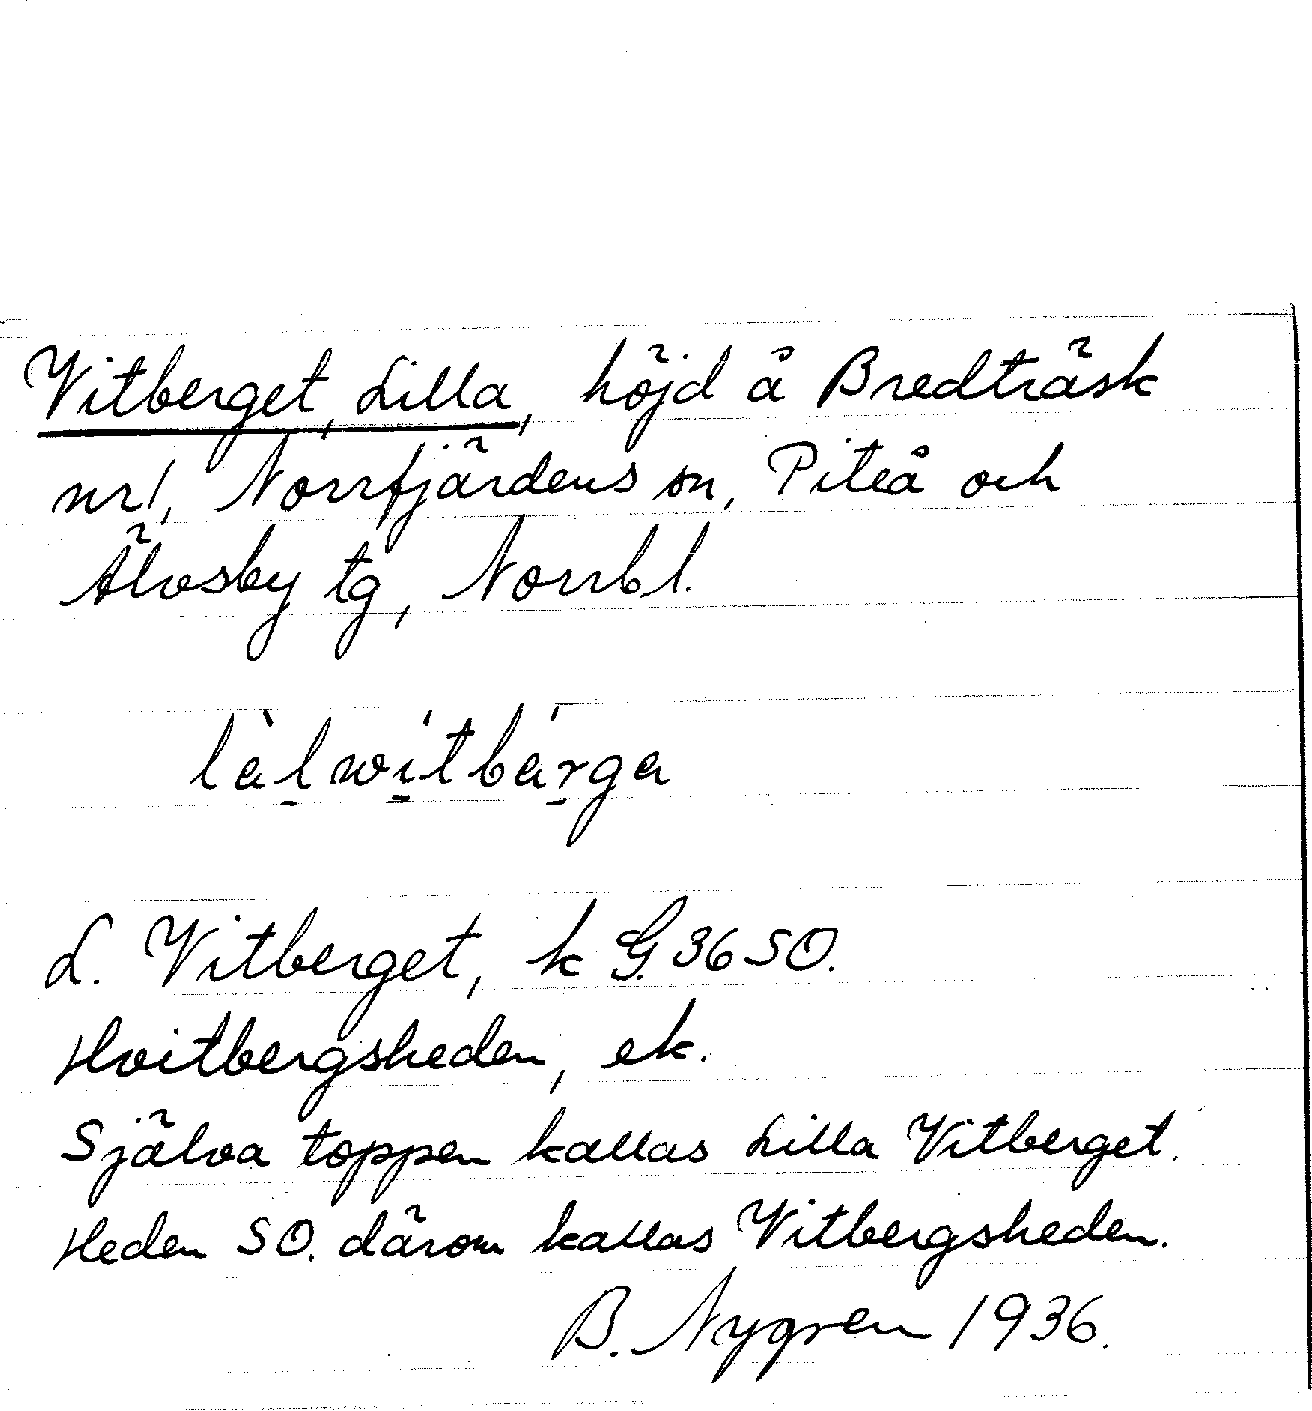 Vitberget, Lilla, höjd å Bredträsk
nr 1, Norrfjärdens sn, Piteå och
Älvsby tg, Norrb l.
làl̠wi̠tbár̠ga
L. Vitberget, k G. 36 SO.
Hvitbergsheden, ek.
Själva toppen kallas Lilla Vitberget.
Heden SO. därom kallas Vitbergsheden.
B. Nygren 1936.